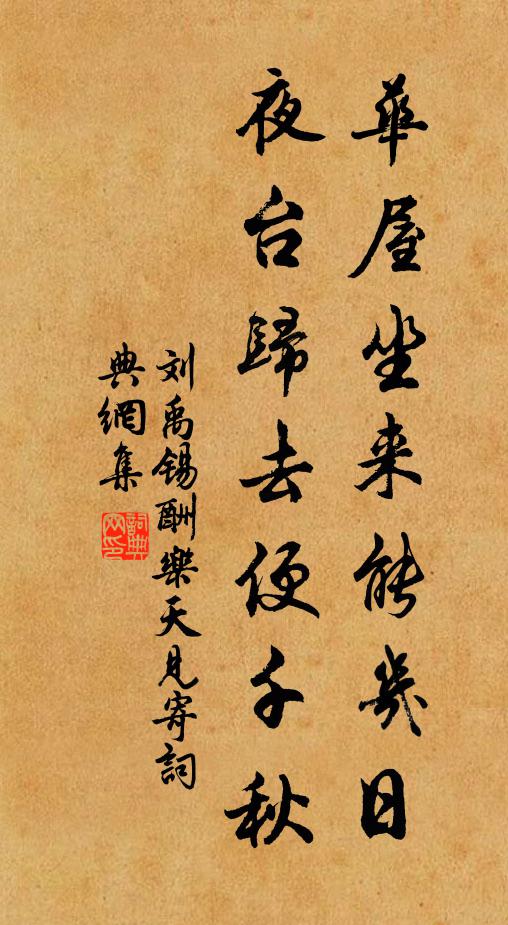 華屋坐来能幾日
夜台歸去便千秋
刘禹锡酬樂天見寄詞
典網集
詞典
网印